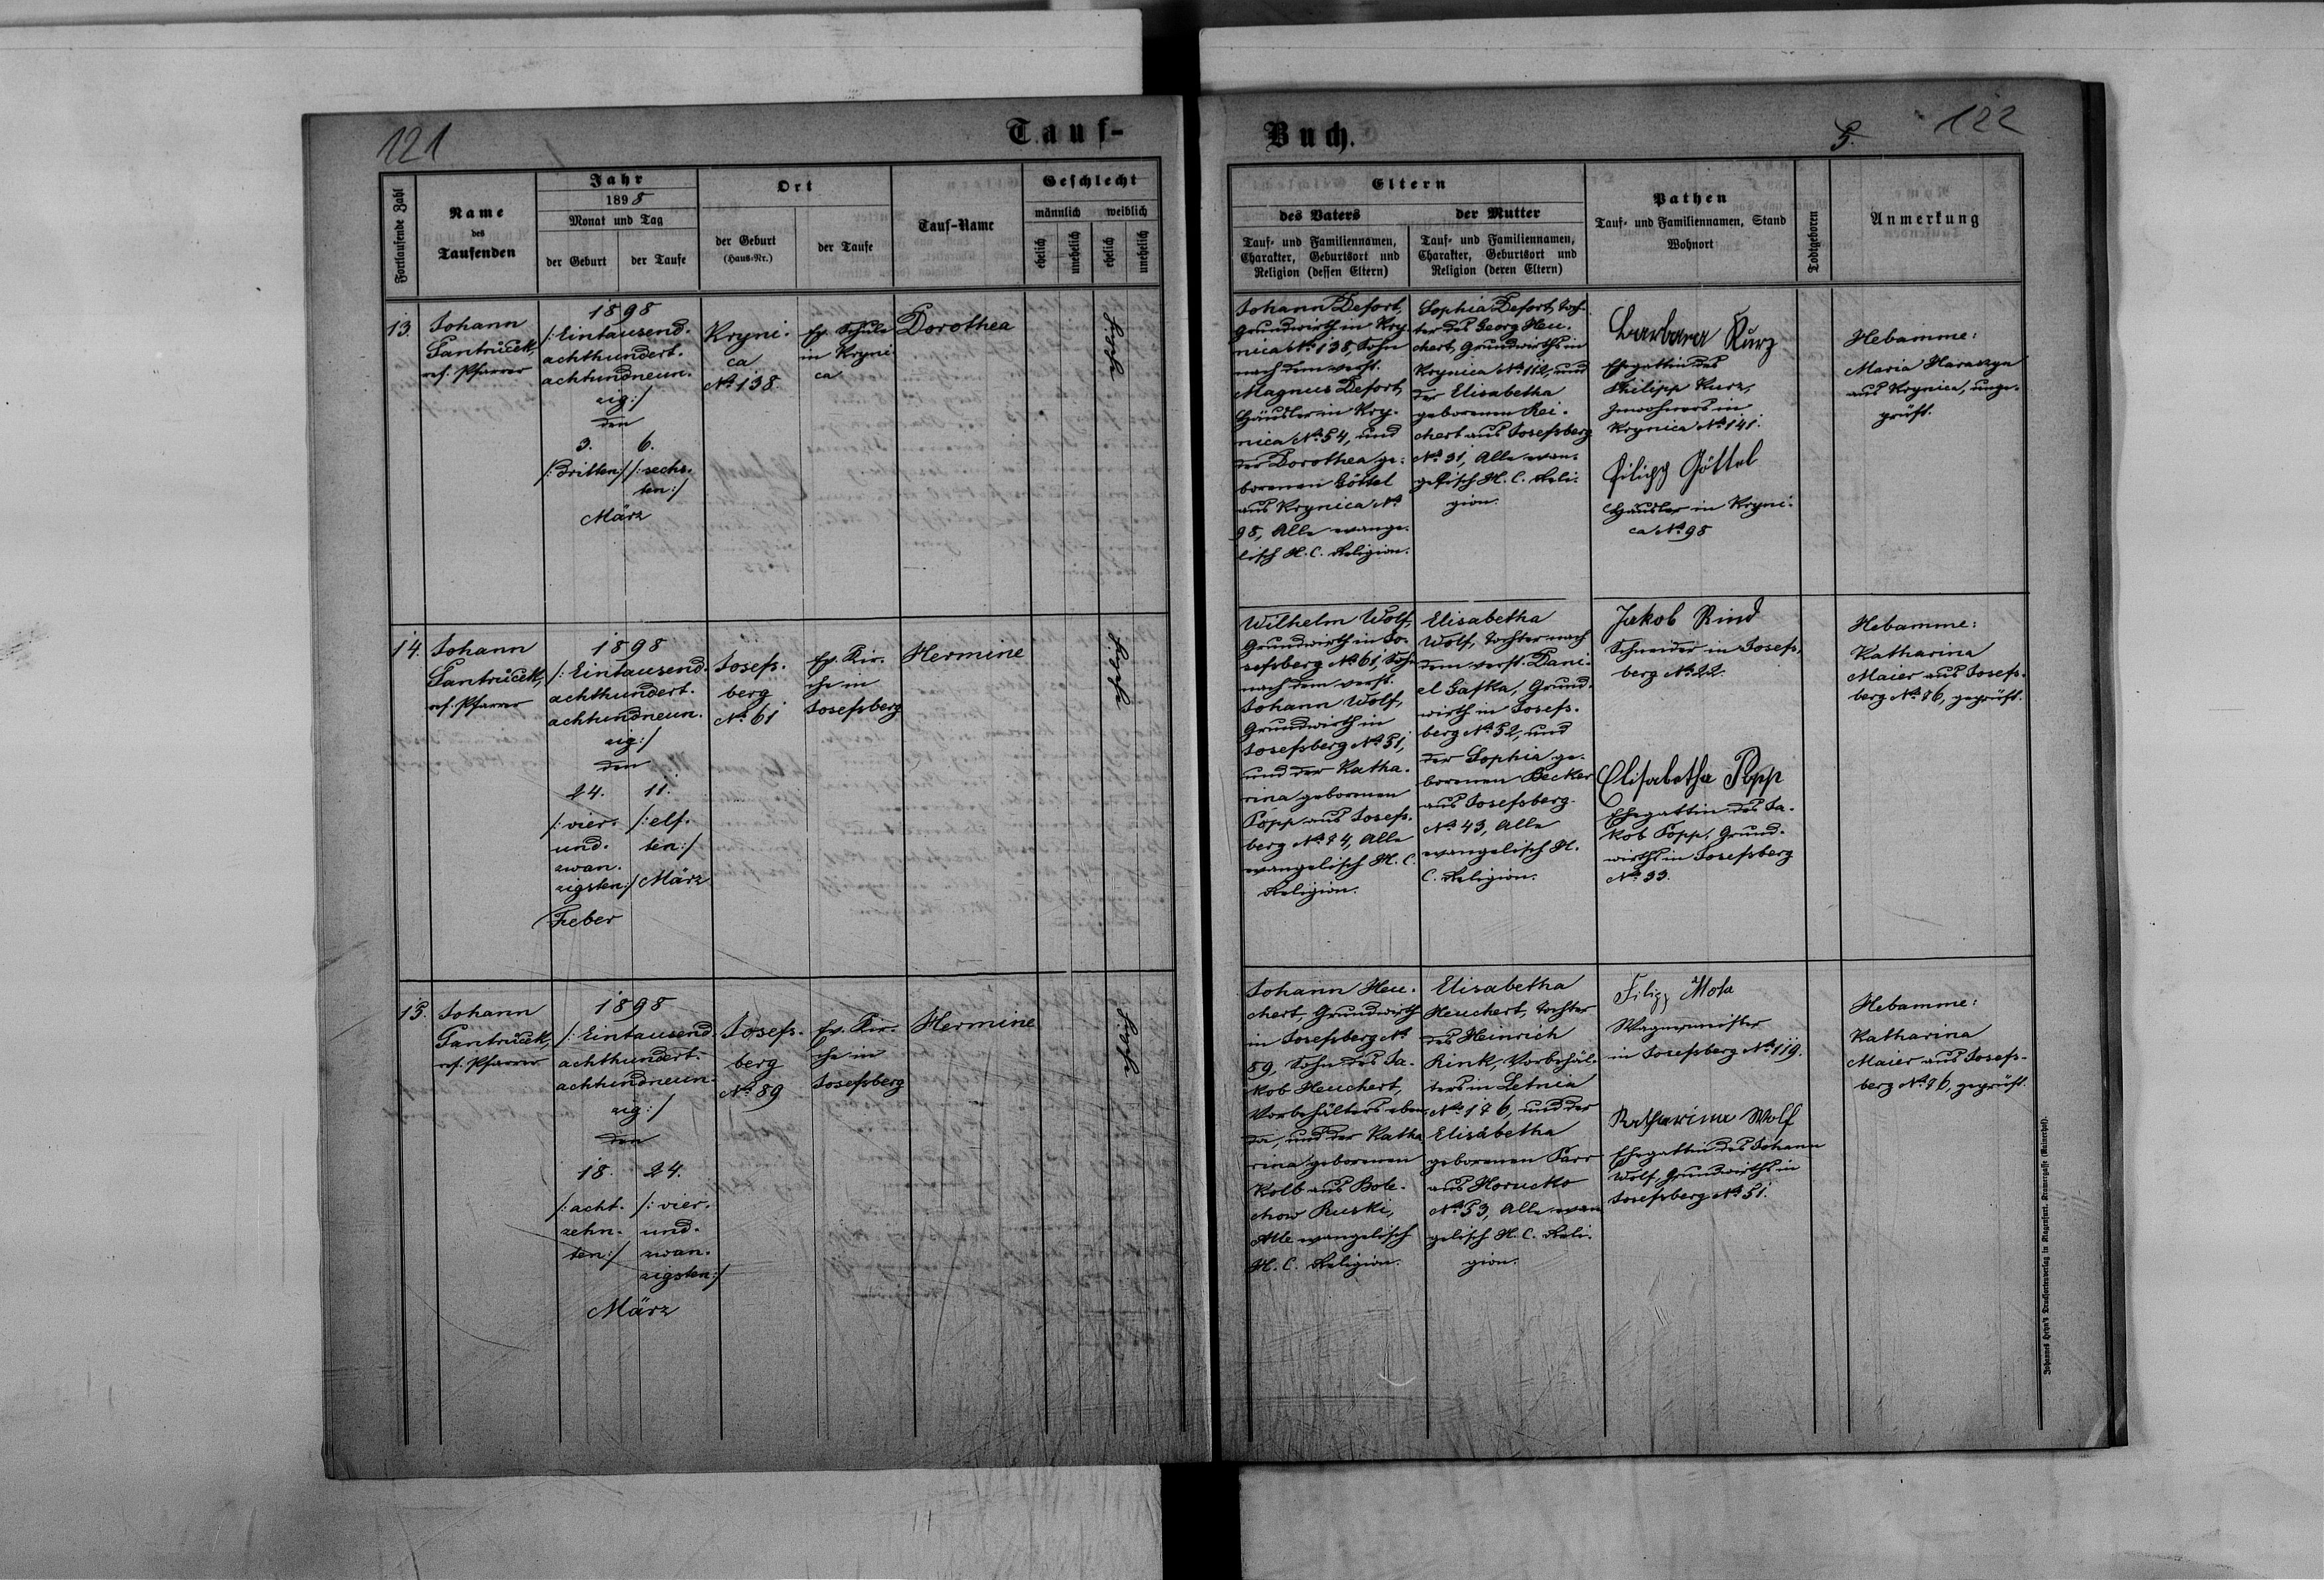 121
Tauf-
Fortlaufende Zahl
Name
des
Taufenden
Jahr
1898
Monat und Tag
der Geburt
der Taufe
Ort
der Geburt
(Haus-Nr.)
der Taufe
Tauf-Name
Geschlecht
männlich
weiblich
ehelich
unehelich
ehelich
unehelich
13.
Johann
ref. Pfarrer
1898
/: Eintausend-
achthundert-
achtundneun-
zig :/
den
3.
/: Dritten :/
6.
/: sechs-
ten :/
März
Kryni-
ca
No 138
Ev. Schule
in Kryni-
ca
Dorothea
ehelich
14.
Johann
ref. Pfarrer
1898
/: Eintausend-
achthundert-
achtundneun-
zig :/
den
24.
/: vier-
und-
zwan-
zigsten :/
Feber
11.
/: elf-
ten :/
März
Josefs-
berg
No 61
Ev. Kir-
che in
Josefsberg
Hermine
ehelich
15.
Johann
ref. Pfarrer
1898
/: Eintausend-
achthundert-
achtundneun-
zig :/
den
18.
/: acht-
zehn-
ten :/
24.
/: vier-
und-
zwan-
zigsten :/
März
Josefs-
berg
No 89
Ev. Kir-
che in
Josefsberg
Hermine
ehelich
Buch.
5.
122
Eltern
des Vaters
Tauf- und Familiennamen,
Charakter, Geburtsort und
Religion (dessen Eltern)
der Mutter
Tauf- und Familiennamen,
Charakter, Geburtsort und
Religion (deren Eltern)
Pathen
Tauf- und Familiennamen, Stand
Wohnort
Todtgeboren
Anmerkung
Johann Defort,
Grundwirth in Kry-
nica No 138, Sohn
nach dem verst.
Magnus Defort,
Häusler in Kry-
nica No 54, und
der Dorothea ge-
borenen Göttel
aus Krynica No
98, Alle evange-
lisch H. C. Religion.
Sophia Defort, Toch-
ter des Georg Heu-
chert, Grundwirths in
Krynica No 112, und
der Elisabetha
geborenen Rei-
chert aus Josefsberg
No 31, Alle evan-
gelisch H. C. Reli-
gion.
Barbara Kurz
Ehegattin des
Philipp Kurz,
Inwohners in
Krynica No 141.
Filipp Göttel
Häusler in Kryni-
ca No 98
Hebamme:
Maria Haraszyn
aus Krynica, unge-
prüft.
Wilhelm Wolf,
Grundwirth in Jo-
sefsberg No 61, Sohn
nach dem verst.
Johann Wolf,
Grundwirth in
Josefsberg No 51,
und der Katha-
rina geborenen
Popp aus Josefs-
berg No 84, Alle
evangelisch H. C.
Religion.
Elisabetha
Wolf, Tochter nach
dem verst. Dani-
el Gafka, Grund-
wirth in Josefs-
berg No 52, und
der Sophia ge-
borenen Becker
aus Josefsberg
No 43, Alle
evangelisch H.
C. Religion.
Jakob Rind
Schneider in Josefs-
berg No 22.
Elisabetha Popp
Ehegattin des Ja-
kob Popp, Grund-
wirths in Josefsberg
No 33.
Hebamme:
Katharina
Maier aus Josefs-
berg No 86, geprüft.
Johann Heu-
chert, Grundwirth
in Josefsberg No
89, Sohn des Ja-
kob Heuchert,
Vorbehälters eben-
da, und der Katha-
rina geborenen
Kolb aus Bole-
chow Ruski,
Alle evangelisch
H. C. Religion.
Elisabetha
Heuchert, Tochter
des Heinrich
Rink, Vorbehäl-
ters in Letnia
No 186, und der
Elisabetha
geborenen Parr
aus Horucko
No 53, Alle evan-
gelisch H. C. Reli-
gion.
Filipp Mota
Wagnermeister
in Josefsberg No 119.
Katharina Wolf
Ehegattin des Johann
Wolf, Grundwirths in
Josefsberg No 51.
Hebamme:
Katharina
Maier aus Josefs-
berg No 86, geprüft.